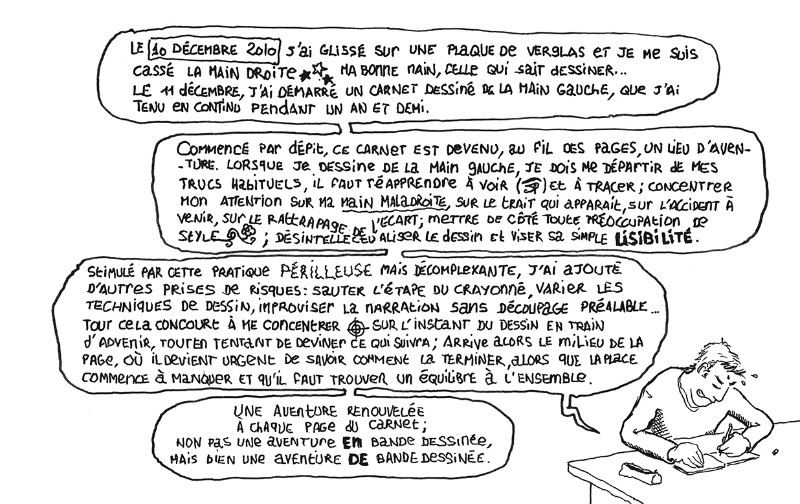 LE 10 DÉCEMBRE 2010 J'AI GLISSÉ SUR UNE PLAQUE DE VERGLAS ET JE ME SUIS
CASSÉ LA MAIN DROITE MA BONNE MAIN, CELLE QUI SAIT DESSINER...
LE 11 DÉCEMBRE, J'AI DÉMARRÉ UN CARNET DESSINÉ DE LA MAIN GAUCHE, QUE J'AI
TENU EN CONTINU PENDANT UN AN ET DEMI.
COMMENCÉ PAR DÉPIT, CE CARNET EST DEVENU, AU FIL DES PAGES, UN LIEU D'AVEN-
-TURE. LORSQUE JE DESSINE DE LA MAIN GAUCHE, JE DOIS ME DÉPARTIR DE MES
TRUCS HABITUELS, IL FAUT RÉAPPRENDRE À VOIR ( ) ET À TRACER ; CONCENTRER
MON ATTENTION SUR MA MAIN MALADROITE, SUR LE TRAIT QUI APPARAIT, SUR L'ACCIDENT À
VENIR, SUR LE RATTRAPAGE DE L'ÉCART ; METTRE DE CÔTÉ TOUTE PRÉOCCUPATION DE
STYLE ; DÉSINTELLECTUALISER LE DESSIN ET VISER SA SIMPLE LISIBILITÉ.
STIMULÉ PAR CETTE PRATIQUE PÉRILLEUSE MAIS DÉCOMPLEXANTE, J'AI AJOUTÉ
D'AUTRES PRISES DE RISQUES : SAUTER L'ÉTAPE DU CRAYONNÉ, VARIER LES
TECHNIQUES DE DESSIN, IMPROVISER LA NARRATION SANS DÉCOUPAGE PRÉALABLE...
TOUT CELA CONCOURT À ME CONCENTRER SUR L'INSTANT DU DESSIN EN TRAIN
D'ADVENIR, TOUT EN TENTANT DE DEVINER CE QUI SUIVRA ; ARRIVE ALORS LE MILIEU DE LA
PAGE, OÙ IL DEVIENT URGENT DE SAVOIR COMMENT LA TERMINER, ALORS QUE LA PLACE
COMMENCE À MANQUER ET QU'IL FAUT TROUVER UN ÉQUILIBRE À L'ENSEMBLE.
UNE AVENTURE RENOUVELÉE
À CHAQUE PAGE DU CARNET ;
NON PAS UNE AVENTURE EN BANDE DESSINÉE,
MAIS BIEN UNE AVENTURE DE BANDE DESSINÉE.